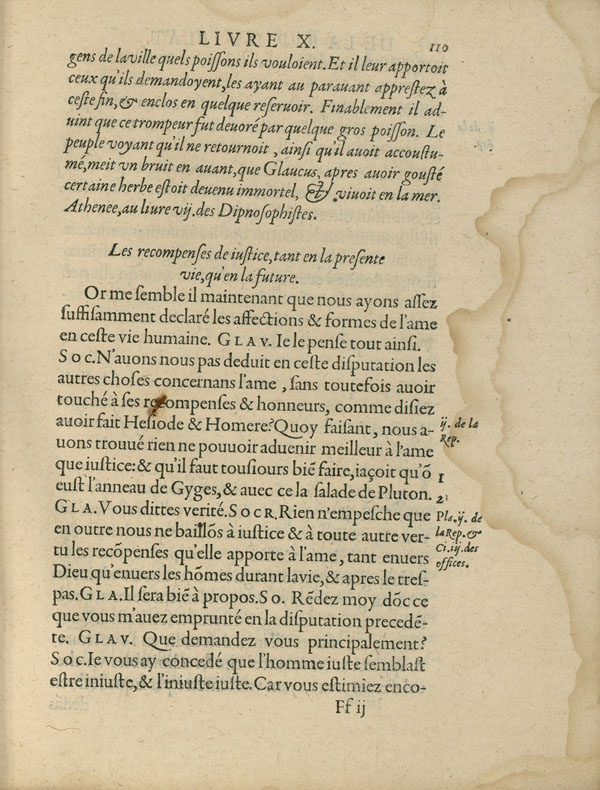 LIVRE X. 110
gens de la ville quels poissons ils vouloient. Et il leur apportoit
ceux qu'ils demandoyent, les ayant au parauant apprestez à
ceste fin, & enclos en quelque reseruoir. Finablement il ad-
uint que ce trompeur fut deuoré par quelque gros poisson. Le
peuple voyant qu'il ne retournoit, ainsi qu'il auoit accoustu-
mé, meit vn bruit en auant, que Glaucus, apres auoir gousté
certaine herbe estoit deuenu immortel, & viuoit en la mer.
Athenee, au liure vij. des Dipnosophistes.
Les recompenses de iustice, tant en la presente
vie, qu'en la future.
Or me semble il maintenant que nous ayons assez
suffisamment declaré les affections & formes de l'ame
en ceste vie humaine. GLAV. Ie le pense tout ainsi.
SOC. N'auons nous pas deduit en ceste disputation les
autres choses concernans l'ame, sans toutefois auoir
touché à ses recompenses & honneurs, comme disiez
auoir fait Hesiode & Homere? Quoy faisant, nous a-
uons trouué rien ne pouuoir aduenir meilleur à l'ame
que iustice: & qu'il faut tousiours biē faire, iaçoit qu'ō
eust l'anneau de Gyges, & auec ce la salade de Pluton.
GLA. Vous dittes verité. SOCR. Rien n'empesche que
en outre nous ne baillōs à iustice & à toute autre ver-
tu les recōpenses qu'elle apporte à l'ame, tant enuers
Dieu qu'enuers les hōmes durant la vie, & apres le tres-
pas. GLA. Il sera biē à propos. SO. Rēdez moy dōc ce
que vous m'auez emprunté en la disputation precedē-
te. GLAV. Que demandez vous principalement?
SOC. Ie vous ay concedé que l'homme iuste semblast
estre iniuste, & l'iniuste iuste. Car vous estimiez enco-
Ff ij
ij. de la
Rep.
1
2
Pla. ij. de
la Rep. &
Ci. iij. des
offices.